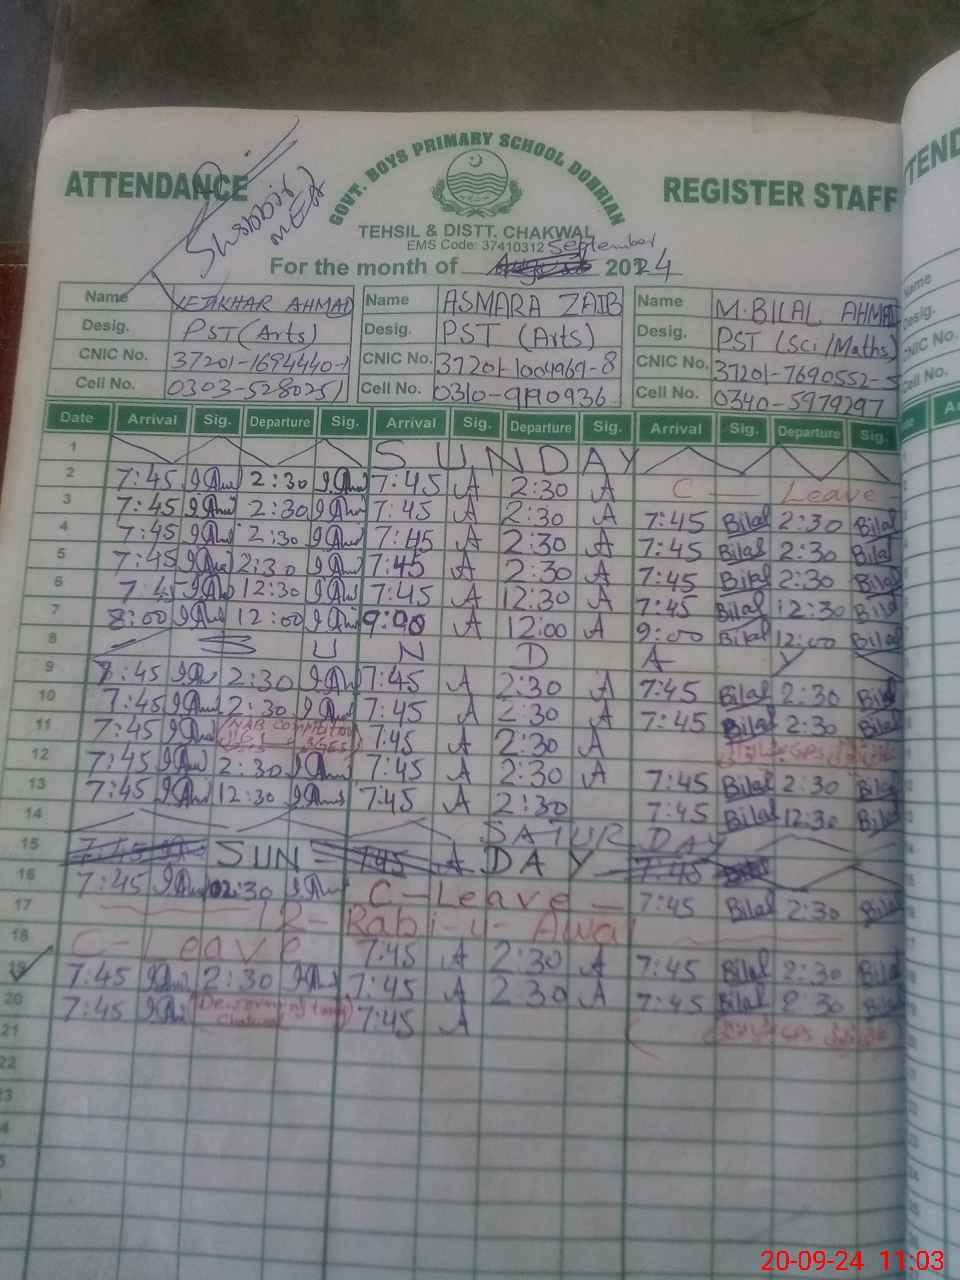 GOVT. BOYS PRIMARY SCHOOL DOHRIAN
ATTENDANCE REGISTER STAFF
Shabbir
MEA
TEHSIL & DISTT. CHAKWAL
EMS Code: 37410312 September
For the month of August 2024
Name IFTIKHAR AHMAD Name ASMARA ZAIB Name M.BILAL AHMAD
Desig. PST (Arts) Desig. PST (Arts) Desig. PST (Sci/Maths)
CNIC No. 37201-1694440-1 CNIC No. 37201-1004969-8 CNIC No. 37201-7690552-
Cell No. 0303-5280251 Cell No. 0310-9190936 Cell No. 0340-5979297
Date Arrival Sig. Departure Sig. Arrival Sig. Departure Sig. Arrival Sig. Departure Sig.
1 SUNDAY
2 7:45 2:30 7:45 A 2:30 A C - Leave
3 7:45 2:30 7:45 A 2:30 A 7:45 Bilal 2:30 Bilal
4 7:45 2:30 7:45 A 2:30 A 7:45 Bilal 2:30 Bilal
5 7:45 2:30 7:45 A 2:30 A 7:45 Bilal 2:30 Bilal
6 7:45 12:30 7:45 A 12:30 A 7:45 Bilal 12:30 Bilal
7 8:00 12:00 9:00 A 12:00 A 9:00 Bilal 12:00 Bilal
8 S U N D A Y
9 7:45 2:30 7:45 A 2:30 A 7:45 Bilal 2:30 Bilal
10 7:45 2:30 7:45 A 2:30 A 7:45 Bilal 2:30 Bilal
11 7:45 7:45 A 2:30 A
12 7:45 2:30 7:45 A 2:30 A 7:45 Bilal 2:30 Bilal
13 7:45 12:30 7:45 A 2:30 7:45 Bilal 12:30 Bilal
14 SATURDAY
15 SUN DAY
16 7:45 02:30 C-Leave 7:45 Bilal 2:30 Bilal
17 12-Rabi-u-Awal
18 C-Leave 7:45 A 2:30 A 7:45 Bilal 2:30 Bilal
19 7:45 2:30 7:45 A 2:30 A 7:45 Bilal 2:30 Bilal
20 7:45 7:45 A
21
22
20-09-24 11:03